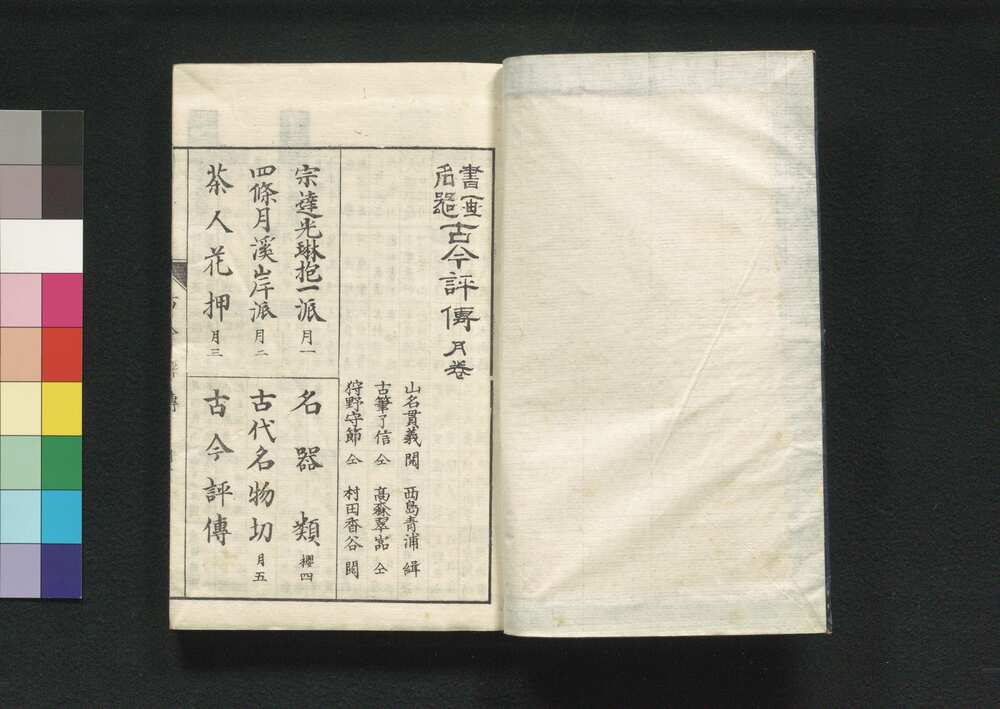 書画
名器
古今評傳 月巻
山名貫義 閲 西島青浦 緝
古筆了信 仝 高森翠嵓 仝
狩野守節 仝 村田香谷 閲
宗達光琳抱一派 月一
四條月溪岸派 月二
茶人花押 月三
名器類 櫻四
古代名物切 月五
古今評傳
古今評傳